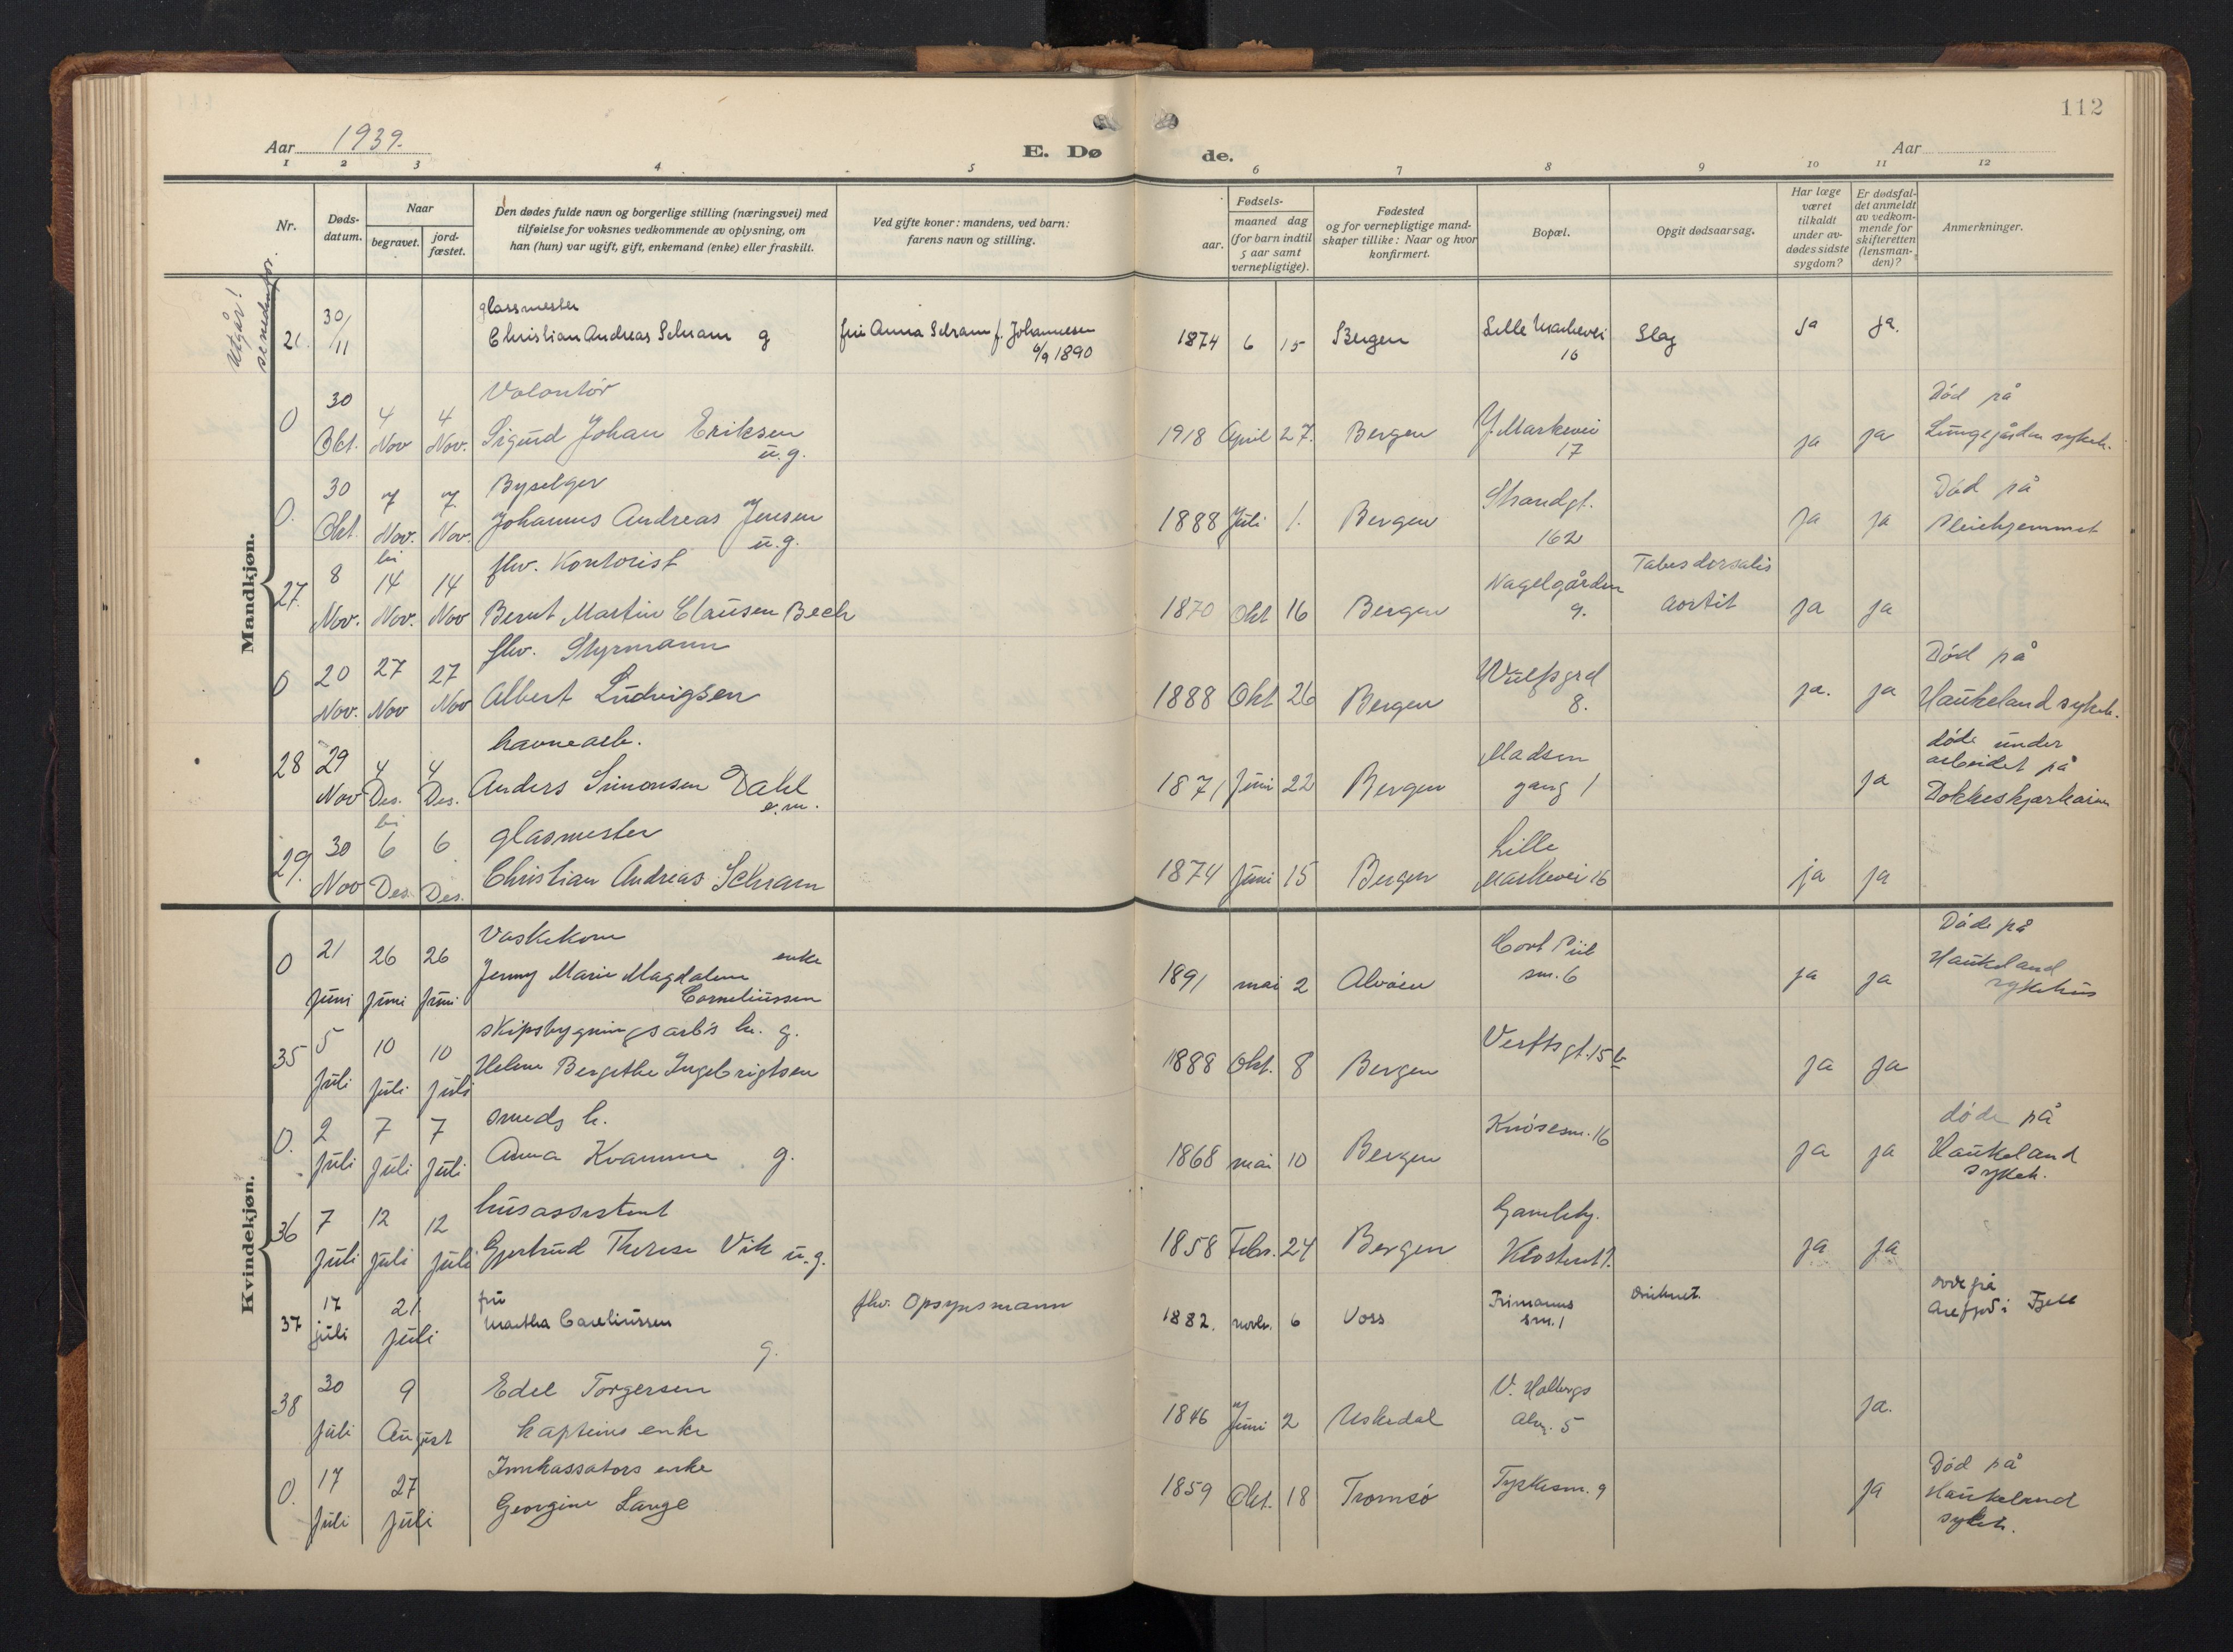 112
Aar 1939.
E. Dø
de.
Aar
1 2 3 4 5 6 7 8 9 10 11 12
Nr.
Døds-
datum.
Naar
begravet.
jord-
fæstet.
Den dødes fulde navn og borgerlige stilling (næringsvei) med
tilføielse for voksnes vedkommende av oplysning, om
han (hun) var ugift, gift, enkemand (enke) eller fraskilt.
Ved gifte koner: mandens, ved barn:
farens navn og stilling.
Fødsels-
aar.
maaned dag
(for barn indtil
5 aar samt
vernepligtige).
Fødested
og for vernepligtige mand-
skaper tillike: Naar og hvor
konfirmert.
Bopæl.
Opgit dødsaarsag.
Har læge
været
tilkaldt
under av-
dødes sidste
sygdom?
Er dødsfal-
det anmeldt
av vedkom-
mende for
skifteretten
(lensman-
den)?
Anmerkninger.
Mandkjøn.
Utgår!
se nedenfor.
glassmester
21. 30/11 Christian Andreas Schram g fru Anna Schram f. Johannesen 1874 6 15 Bergen Lille Markevei Slag Ja ja.
6/9 1890 16
30 Volontør Død på
0 Okt. 4 Nov 4 Nov. Sigurd Johan Eriksen 1918 April 27. Bergen Y. Markevei ja ja Lungegården sykeh.
u.g. 17
30 7 7 Byselger Strandgt. Død på
0. Okt. Nov. Nov. Johannes Andreas Jensen 1888 Juli 1. Bergen 162 ja ja Pleiehjemmet
u.g.
bi
8 14 14 fhv. Kontorist Nagelgården Tabes dorsalis
27. Nov. Nov. Nov Bernt Martin Clausen Bech 1870 Okt 16 Bergen 9. Aortit ja ja
20 27 27 fhv. Styrmann Wulfsgrd Død på
0 Nov. Nov Nov Albert Ludvigsen 1888 Okt 26 Bergen 8. ja. ja Haukeland sykeh.
29 4 4 havnearb. Madsen døde under
arbeidet på
28 Nov Des. Des. Anders Simonsen Dahl 1871 Juni 22 Bergen gang 1 ja Dokkeskjærkaien
e.m.
bi
30 6 6 glasmester Lille
29. Nov Des. Des. Christian Andreas Schram 1874 Juni 15 Bergen Markevei 16 ja ja
Kvindekjøn.
21 26 26 Vaskekone Cort Piil Døde på
0 Juni Juni Juni Jenny Marie Magdalene enke 1891 mai 2 Alvøen sm. 6 ja ja Haukeland
Corneliussen sykehus
5 10 10 skipsbygningsarb's h. g. Verftsgt. 15 b
35 Juli Juli Juli Helene Bergithe Ingebrigtsen 1888 Okt. 8 Bergen ja ja
2 7 7 smeds h. Knøsesm. 16 døde på
0. Juli Juli Juli Anna Kvamme g. 1868 mai 10 Bergen ja ja Haukeland
sykeh.
7 12 12 husassistent Gamleby.
36 Juli Juli Juli Gjertrud Therese Vik u.g. 1858 Febr. 24 Bergen Klosteret 1. ja ja
17 21 fru fhv. Opsynsmann
37 juli juli Martha Careliussen 1882. novbr. 6 Voss Frimanns druknet. i Fjell
g. sm. 1
30 9 Edel Torgersen V. Holbergs
38 Juli August kapteins enke 1846 Juni 2 Uskedal Alm. 5 ja.
17 27 Innkassators enke Død på
0. Juli Juli Georgine Lange 1859 Okt. 18 Tromsø Tyskesm. 9 ja Haukeland
sykeh.